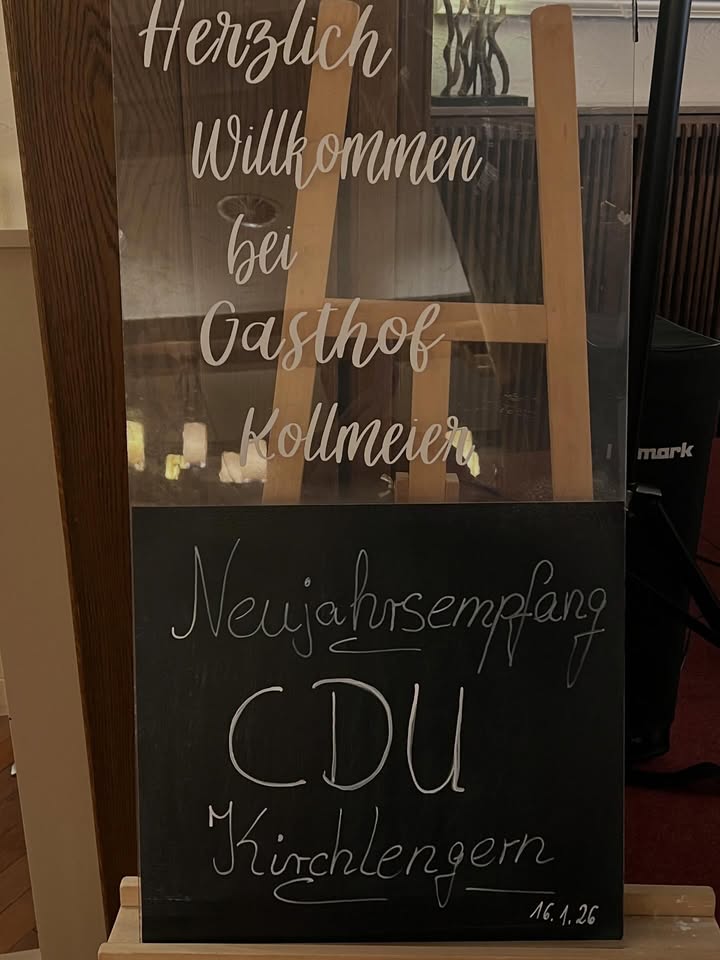 Herzlich
Willkommen
bei
Gasthof
Kollmeier
mark
Neujahrsempfang
CDU
Kirchlengern
16.1.26